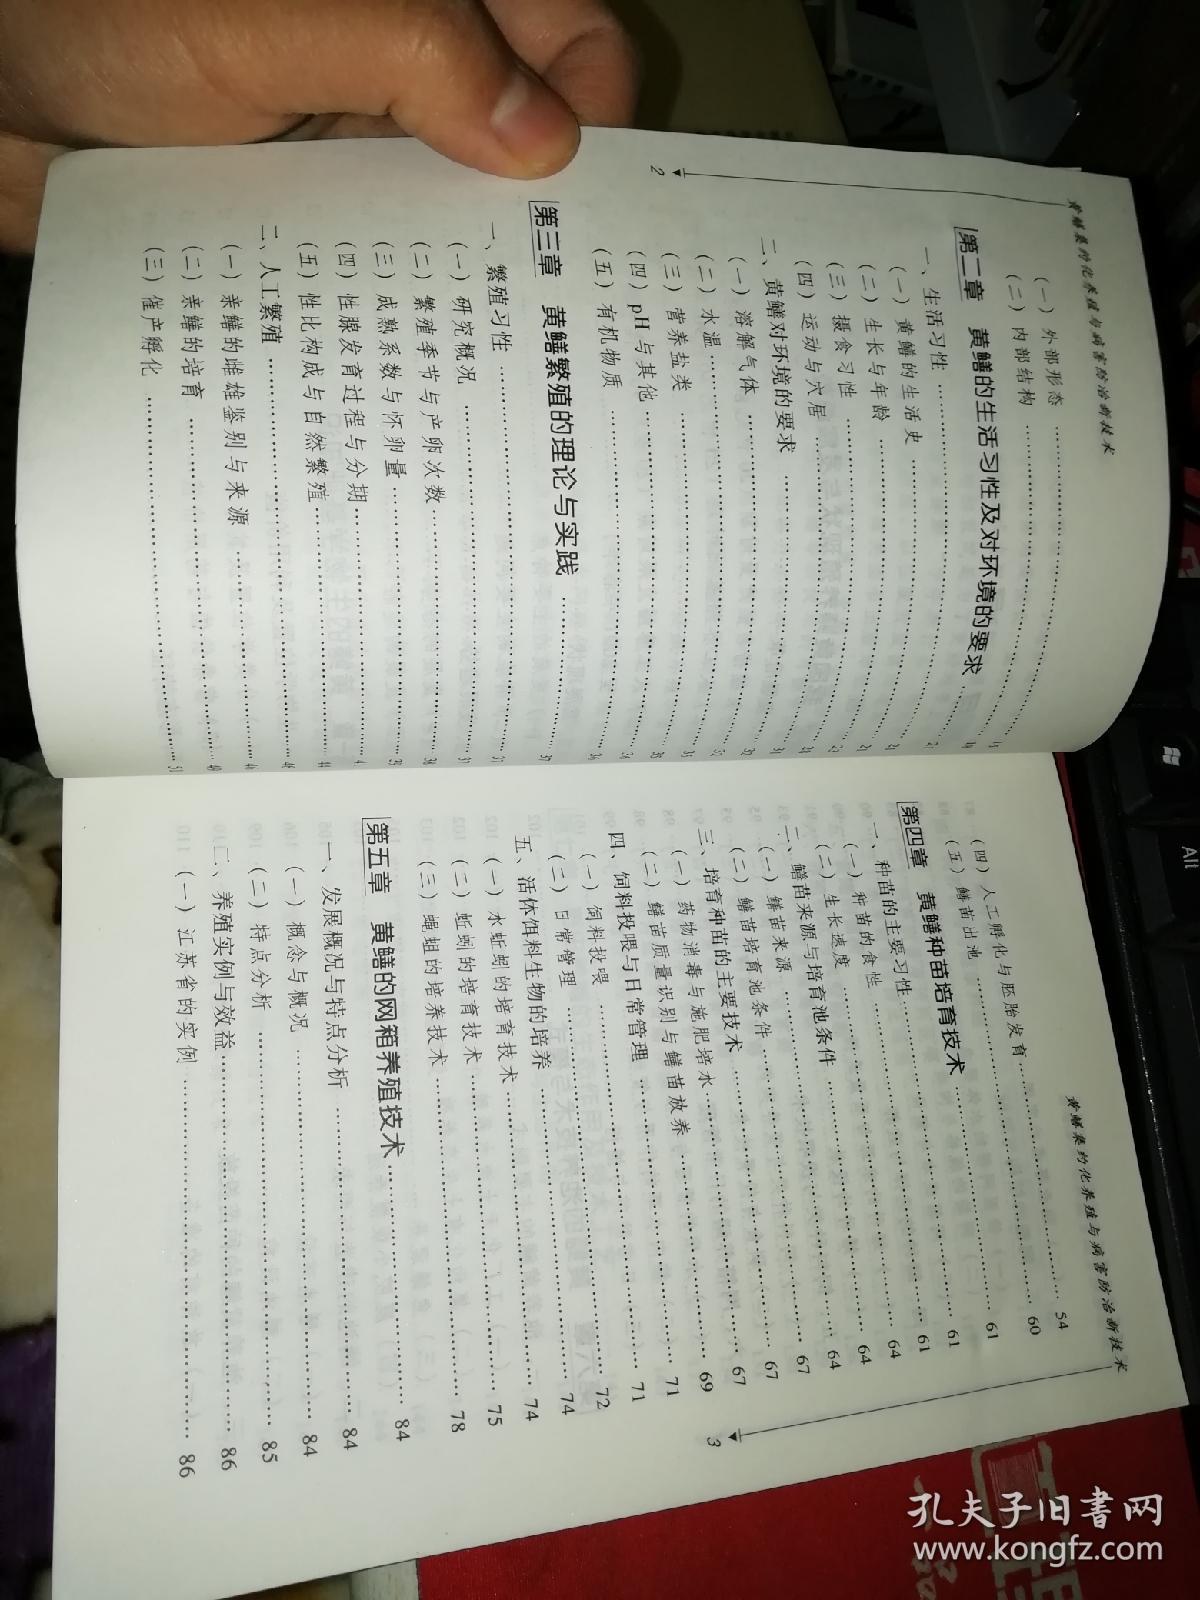 黄鳝集约化养殖与病害防治新技术
（一）外部形态
（二）内部结构
第二章 黄鳝的生活习性及对环境的要求
一、生活习性
（一）黄鳝的生活史
（二）生长与年龄
（三）摄食习性
（四）运动与穴居
二、黄鳝对环境的要求
（一）溶解气体
（二）水温
（三）营养盐类
（四）pH与其他
（五）有机物质
第三章 黄鳝繁殖的理论与实践
一、繁殖习性
（一）研究概况
（二）繁殖季节与产卵次数
（三）成熟系数与怀卵量
（四）性腺发育过程与分期
（五）性比构成与自然繁殖
二、人工繁殖
（一）亲鳝的雌雄鉴别与来源
（二）亲鳝的培育
（三）催产孵化
2
黄鳝集约化养殖与病害防治新技术
（四）人工孵化与胚胎发育 54
（五）鳝苗出池 60
第四章 黄鳝种苗培育技术 61
一、种苗的主要习性 61
（一）种苗的食性 61
（二）生长速度 64
二、鳝苗来源与培育池条件 64
（一）鳝苗来源 64
（二）鳝苗培育池条件 67
三、培育种苗的主要技术 67
（一）药物消毒与施肥培水 67
（二）鳝苗质量识别与鳝苗放养 69
四、饲料投喂与日常管理 71
（一）饲料投喂 71
（二）日常管理 72
五、活体饵料生物的培养 74
（一）水蚯蚓的培育技术 74
（二）蚯蚓的培育技术 75
（三）蝇蛆的培养技术 78
第五章 黄鳝的网箱养殖技术 84
一、发展概况与特点分析 84
（一）概念与概况 84
（二）特点分析 85
二、养殖实例与效益 86
（一）江苏省的实例 86
3
孔夫子旧书网
www.kongfz.com
Alt